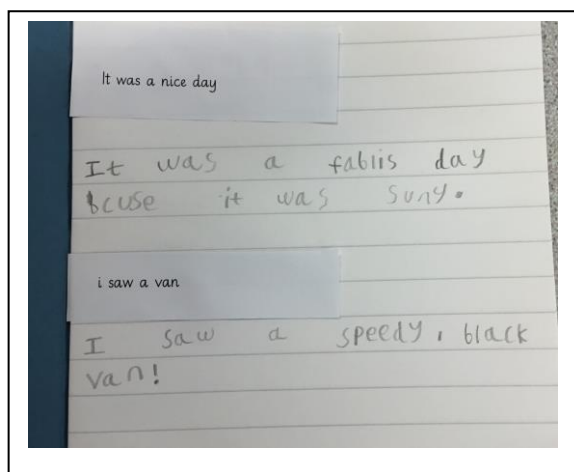 It was a nice day
It was a fabiis day
bcuse it was suny.
i saw a van
I saw a speedy, black
van!